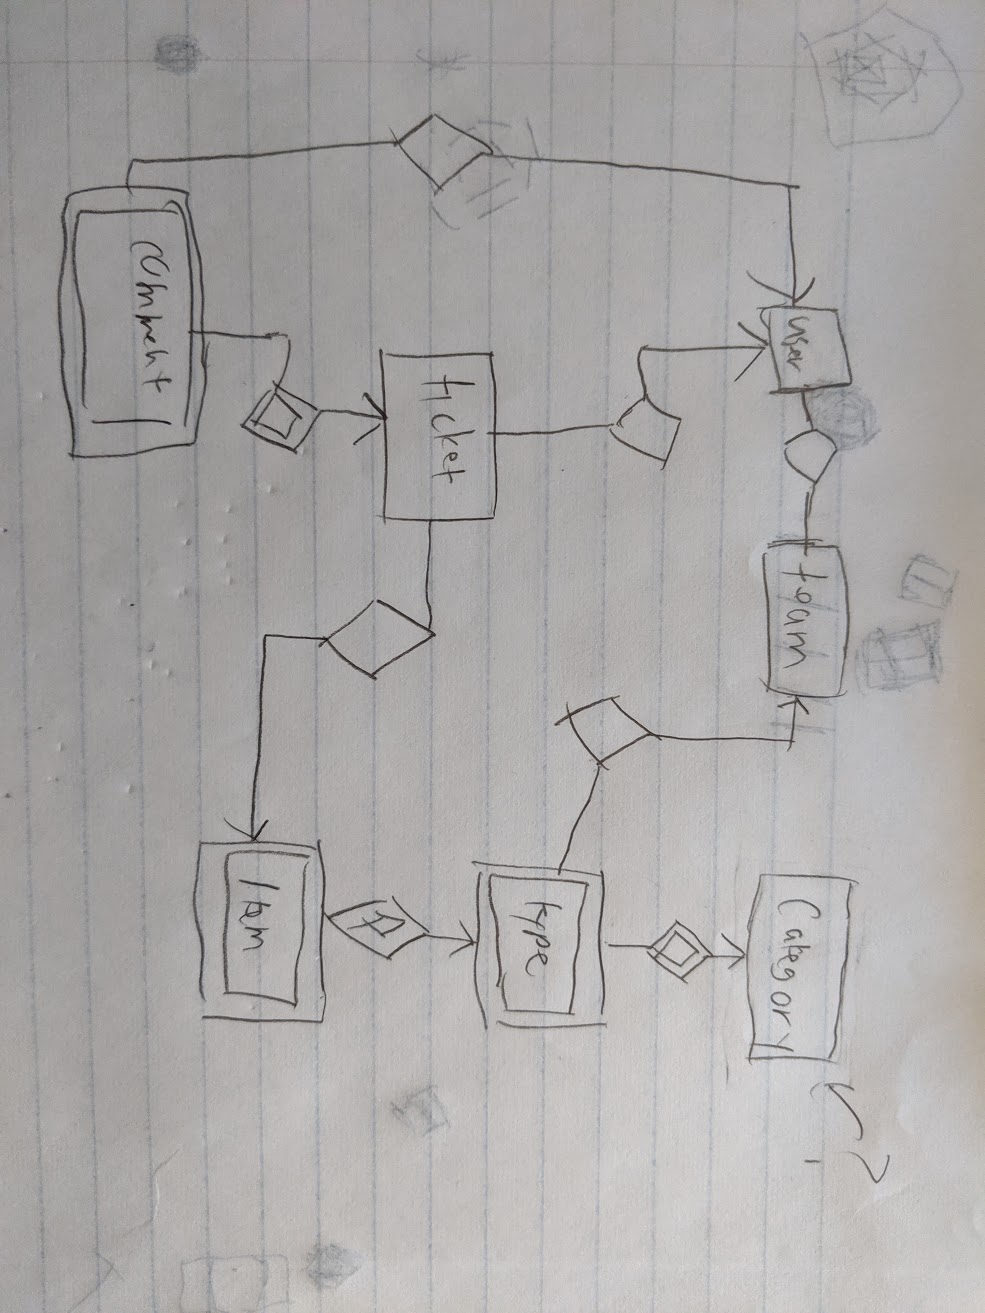 ?
user
team
Category
type
ticket
Item
comment